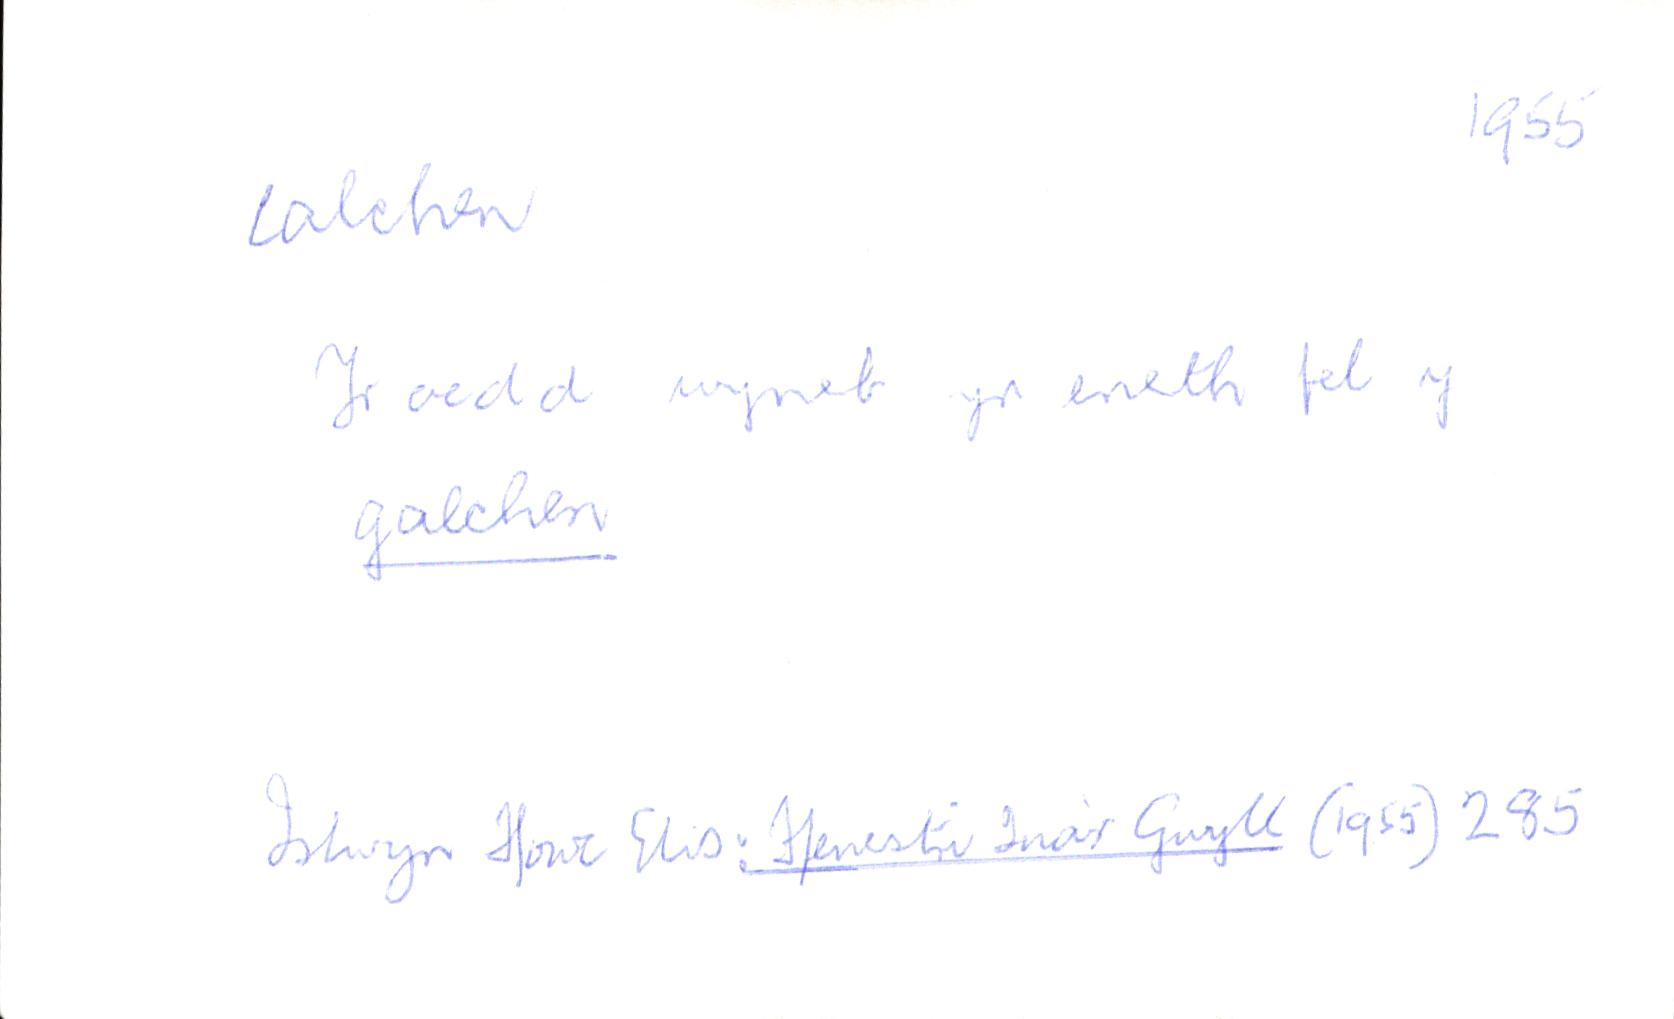 1955
calchen
Yr oedd wyneb yr eneth fel y
galchen
Islwyn Ffowc Elis: Ffenestri Tua'r Gwyll (1955) 285